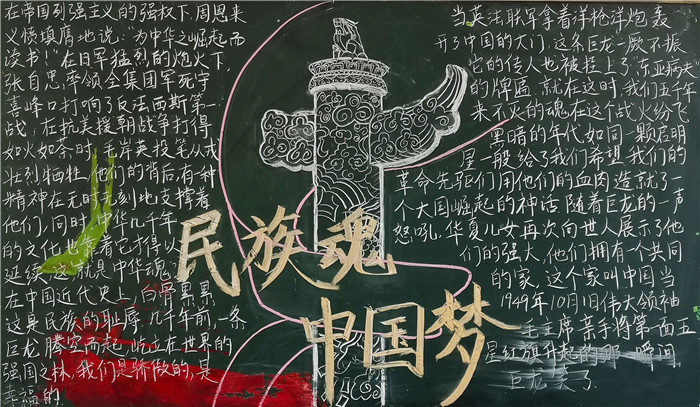 在帝国列强主义的强权下,周恩来
义愤填膺地说:“为中华之崛起而
读书!”在日军猛烈的炮火下,
张自忠率领全集团军死守
喜峰口打响了反法西斯第一
战,在抗美援朝战争打得
如火如荼时,毛岸英投笔从戎
壮烈牺牲,他们的背后有种
精神在无时无刻地支撑着
他们,同时,中华几千年
的文化也靠着它才得以
延续,这,就是中华魂
在中国近代史上,白骨累累
这是民族的耻辱,几千年前,一条
巨龙腾空而起,屹立在世界的
强国之林,我们是骄傲的,是
幸福的
民族魂
中国梦
当英法联军拿着洋枪洋炮轰
开了中国的大门,这条巨龙一厥不振
它的传人也被挂上了“东亚病夫”
的牌匾,就在这时,我们五千年
来不灭的魂在这个战火纷飞
黑暗的年代如同一颗启明
星一般给了我们希望,我们的
革命先驱们用他们的血肉造就了
一个大国崛起的神话,随着巨龙的一声
怒吼,华夏儿女再次向世人展示了他
们的强大,他们拥有一个共同
的家,这个家叫中国,当
1949年10月1日伟大领袖
毛主席亲手将第一面五
星红旗升起的那一瞬间
巨龙笑了